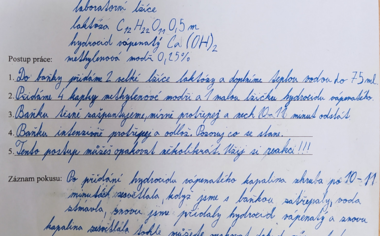 laboratorní lžíce
laktóza C₁₂H₂₂O₁₁ 0,5 m
hydroxid vápenatý Ca(OH)₂
methylenová modř 0,25%
Postup práce:
1. Do baňky přidáme 2 velké lžíce laktózy a doplníme teplou vodou do 75 ml
2. Přidáme 4 kapky methylenové modři a 1 malou lžičku hydroxidu vápenatého
3. Baňku těsně zašpuntujeme, mírně protřepej a nech 10-11 minut odstát
4. Baňku intenzivně protřepej a odlož. Pozoruj co se stane.
5. Tento postup můžeš opakovat několikrát. reakci!!!
Záznam pokusu: Po přidání hydroxidu vápenatého kapalina ztratila po 10-11
minutách zesvětlala, když jsme s baňkou zatřepaly, voda
ztmavla, znovu jsme přidaly hydroxid vápenatý a znovu
kapalina zesvětlala, tohle můžeme